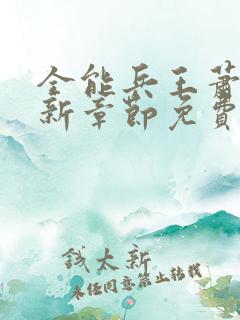 全能兵王萧
新章节免费
钱太新
未经同意禁止转载